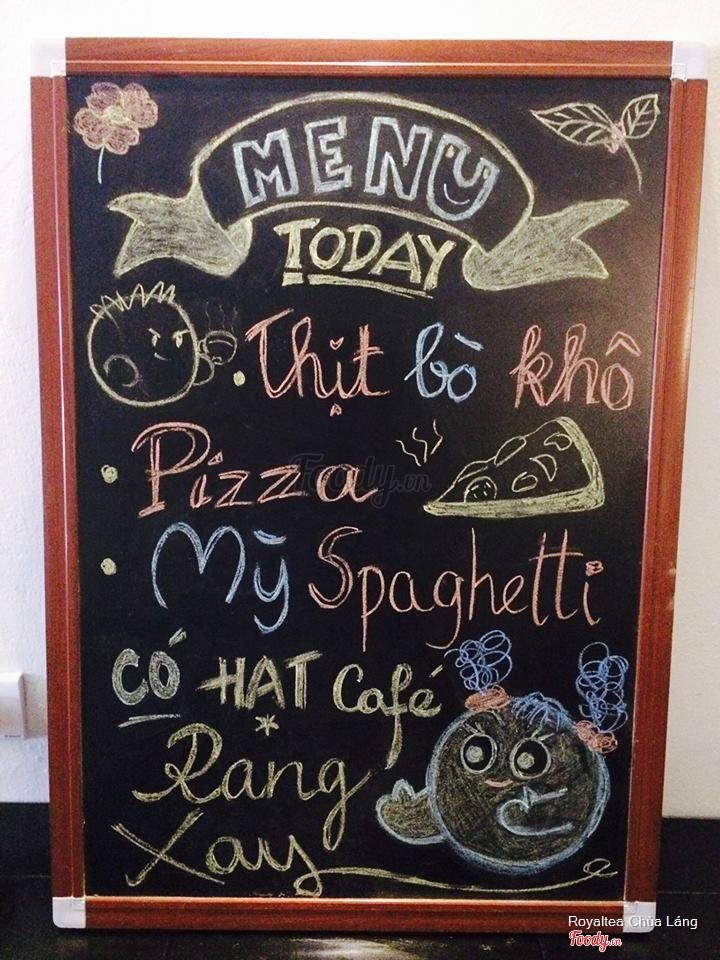 MENU
TODAY
• Thịt bò khô
• Pizza
• Mỳ Spaghetti
CÓ HẠT Café
Rang
Xay
Foody.vn
Royaltea Chùa Láng
Foody.vn